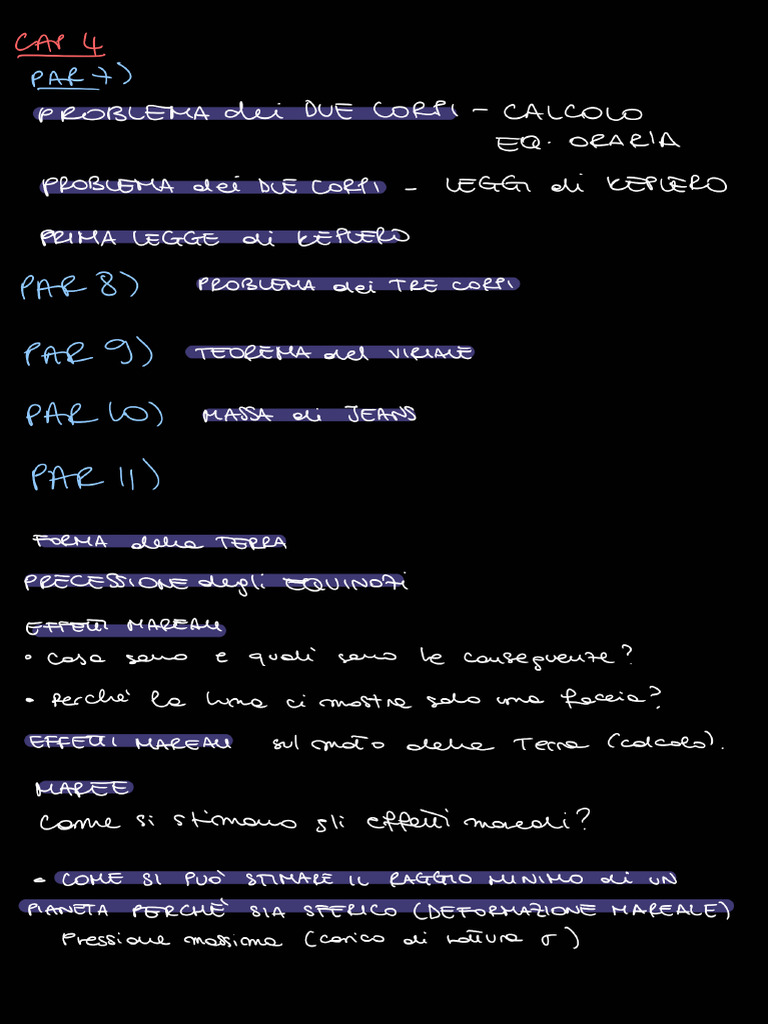 CAP 4
PAR 7)
PROBLEMA dei DUE CORPI - CALCOLO
EQ. ORARIA
PROBLEMA dei DUE CORPI - LEGGI di KEPLERO
PRIMA LEGGE di KEPLERO
PAR 8) PROBLEMA dei TRE CORPI
PAR 9) TEOREMA del VIRIALE
PAR 10) MASSA di JEANS
PAR 11)
FORMA della TERRA
PRECESSIONE degli EQUINOZI
EFFETTI MAREALI
• Cosa sono e quali sono le conseguenze?
• Perchè la luna ci mostra solo una faccia?
EFFETTI MAREALI sul moto della Terra (calcolo).
MAREE
Come si stimano gli effetti mareali?
• COME SI PUÒ STIMARE IL RAGGIO MINIMO di UN
PIANETA PERCHÈ SIA SFERICO (DEFORMAZIONE MAREALE)
Pressione massima (carico di rottura σ)